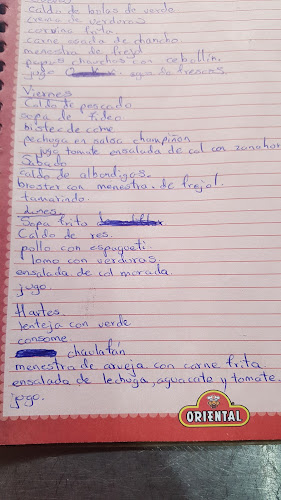 caldo de bolas de verde
crema de verduras
corvina frita
carne asada de chancho
menestra de
papas chauchas con cebollin.
jugo de frescos.
Viernes
Caldo de pescado
sopa de fideo
bistec de carne
pechuga en salsa champiñon
jugo tomate ensalada de col con zanahor
Sabado
caldo de albondigas.
biester con menestra de frejol.
tamarindo.
Lunes.
Sopa frita
Caldo de res.
pollo con espagueti.
lomo con verduras.
ensalada de col morada.
jugo.
Martes
lenteja con verde
consome.
chaulafán
menestra de arveja con carne frita
ensalada de lechuga, aguacate y tomate.
jugo.
ORIENTAL